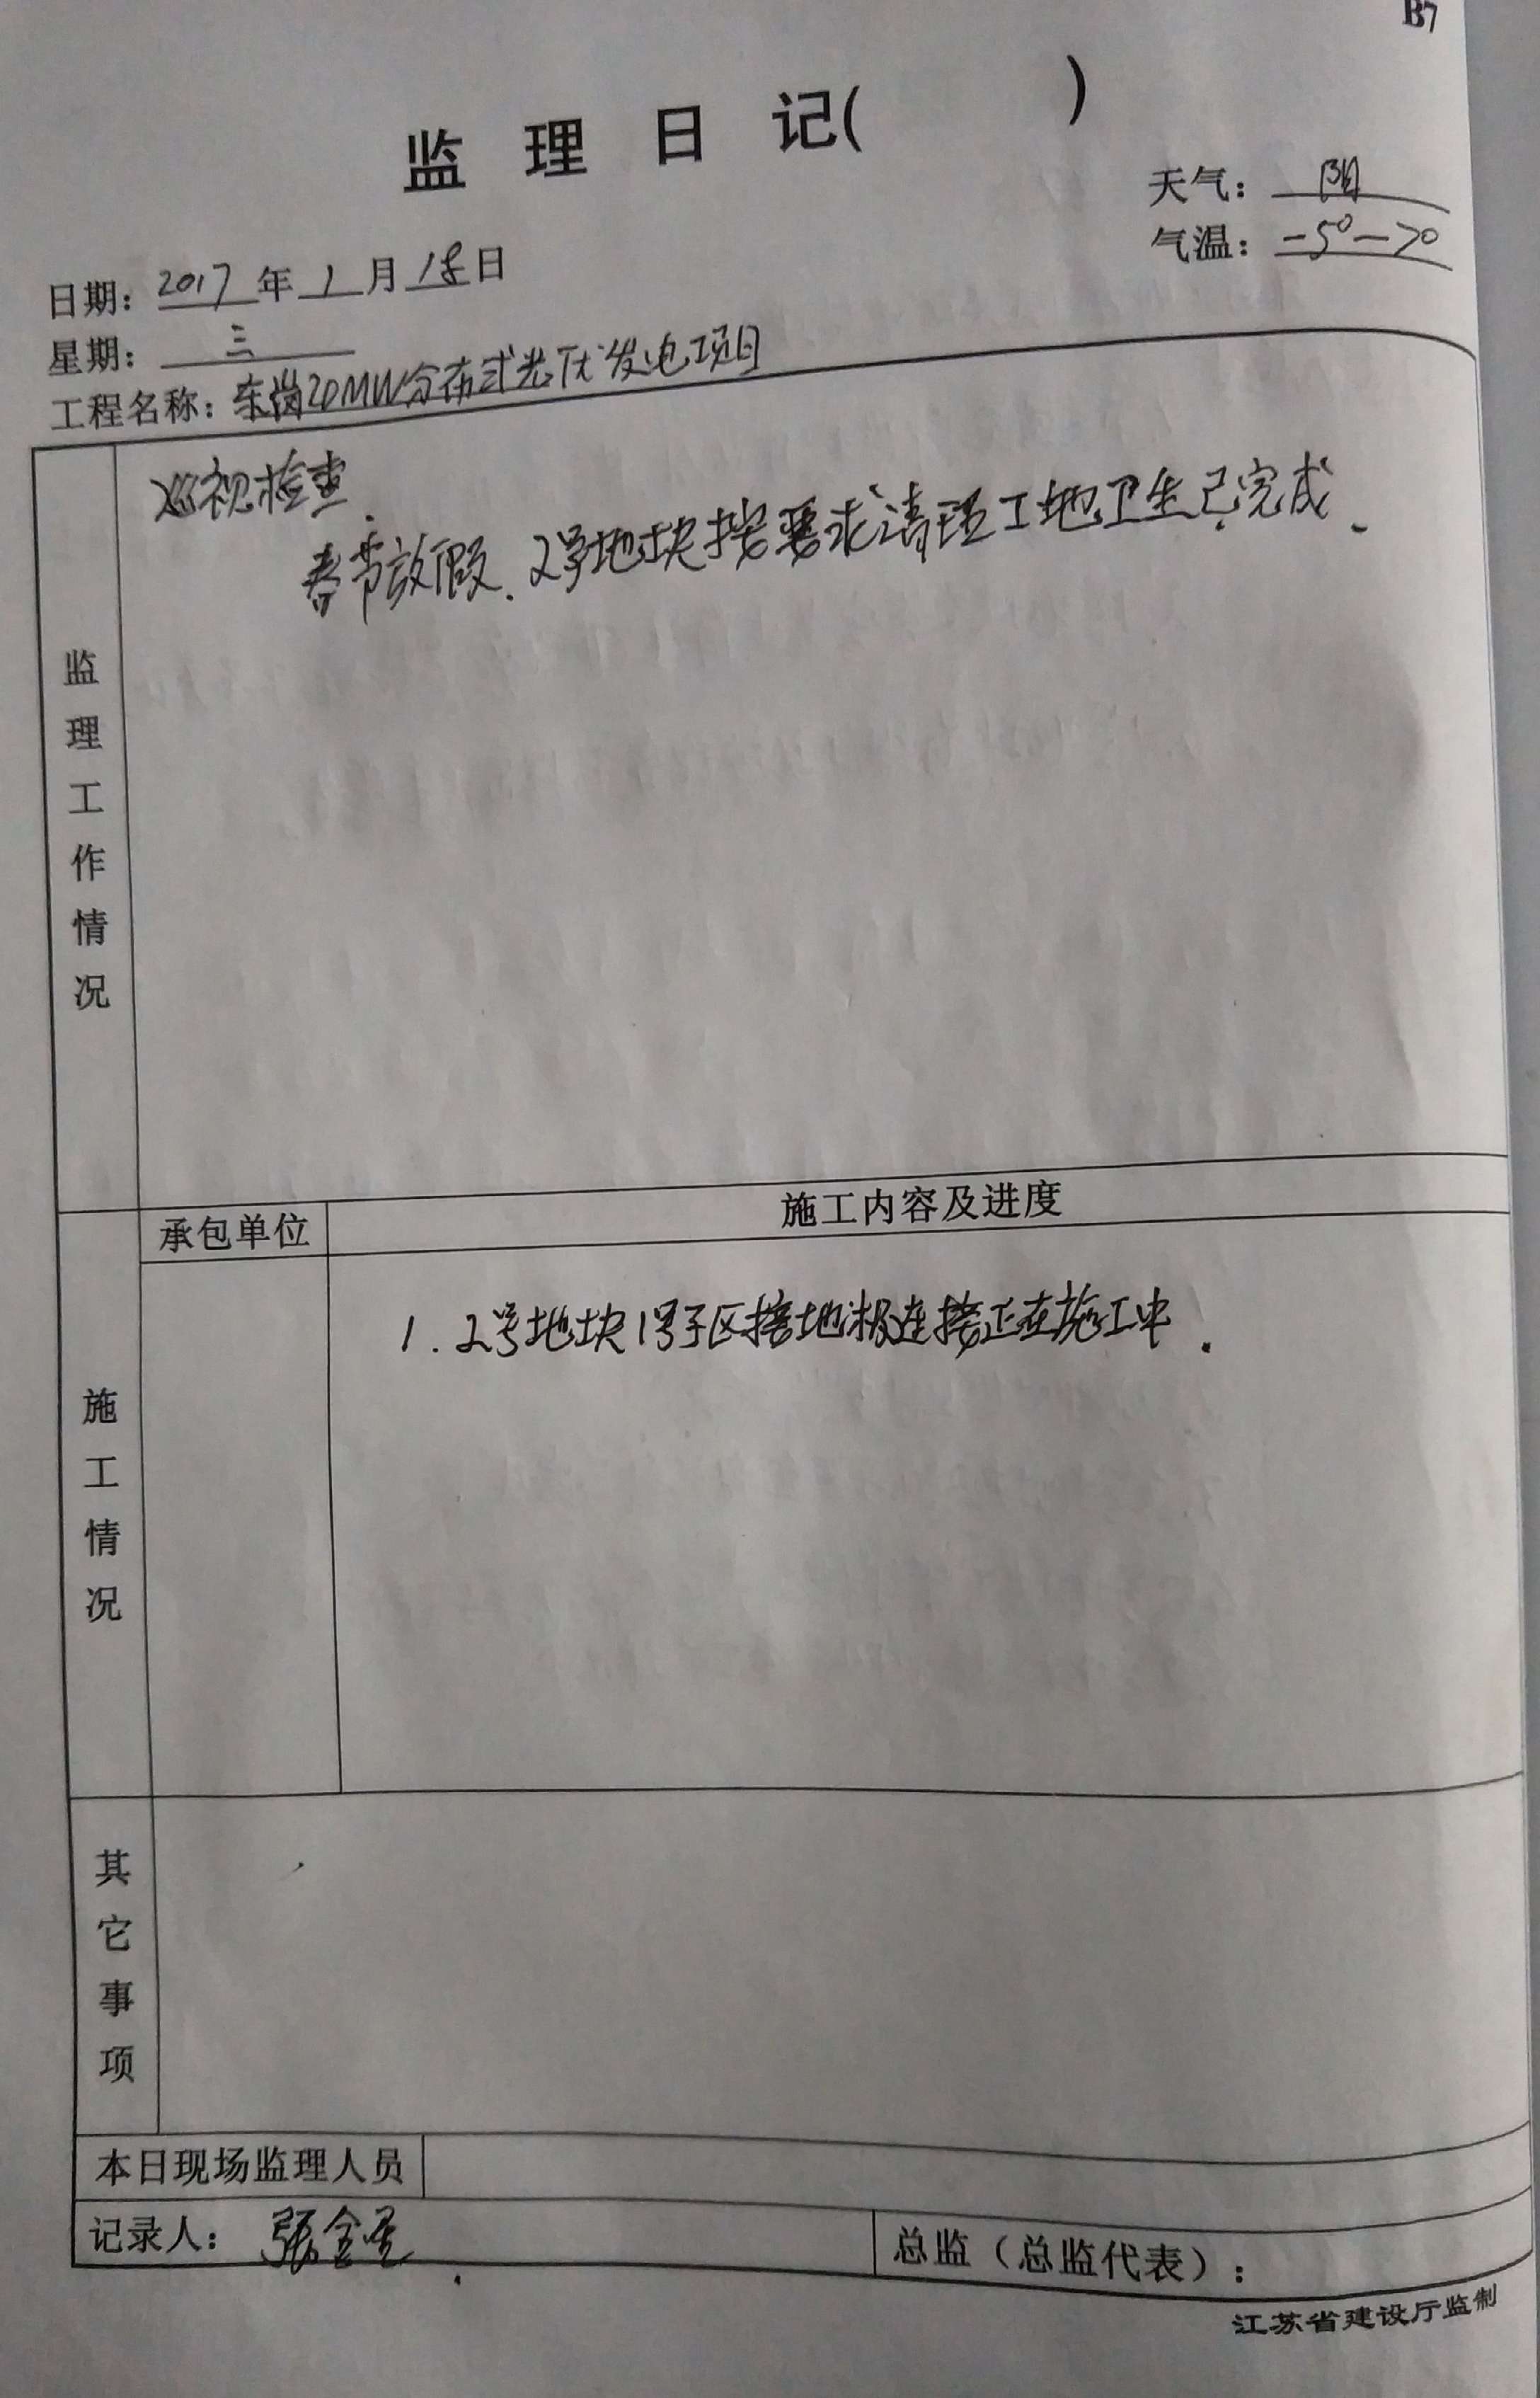 B7
监理日记( )
天气: 阴
气温: -5°-7°
日期: 2017年1月18日
星期: 三
工程名称: 东岗20MW分布式光伏发电项目
监理工作情况
巡视检查.
春节放假. 2号地块按要求清理工地卫生已完成.
承包单位
施工内容及进度
施工情况
1. 2号地块1号子区接地极连接正在施工中.
其它事项
本日现场监理人员
记录人: 张金
总监(总监代表):
江苏省建设厅监制